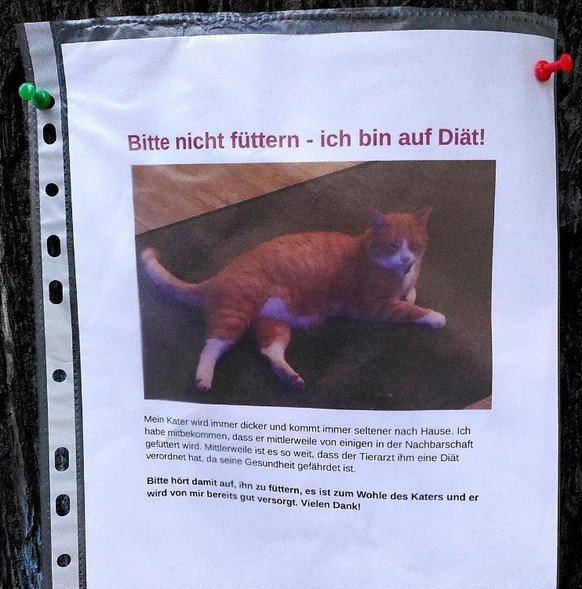 Bitte nicht füttern - ich bin auf Diät!
Mein Kater wird immer dicker und kommt immer seltener nach Hause. Ich
habe mitbekommen, dass er mittlerweile von einigen in der Nachbarschaft
gefüttert wird. Mittlerweile ist es so weit, dass der Tierarzt ihm eine Diät
verordnet hat, da seine Gesundheit gefährdet ist.
Bitte hört damit auf, ihn zu füttern, es ist zum Wohle des Katers und er
wird von mir bereits gut versorgt. Vielen Dank!